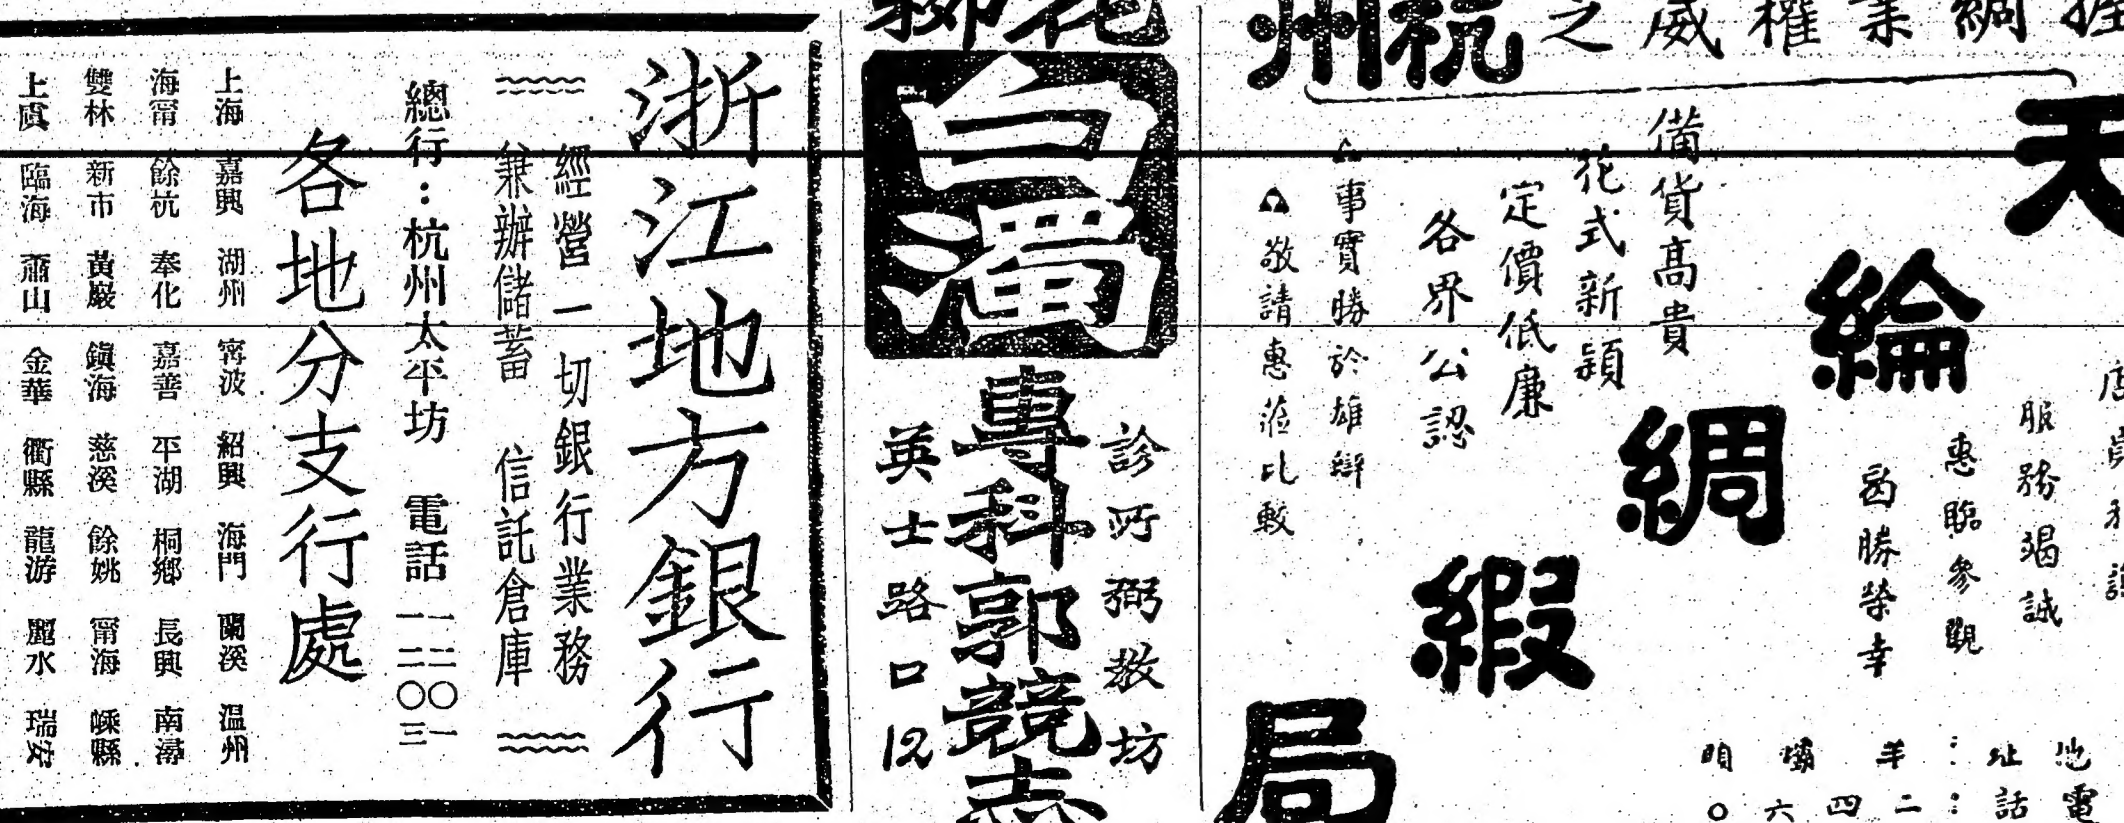 綢業權威之
杭州
天綸綢緞局
備貨高貴
花式新穎
定價低廉
各界公認
事實勝於雄辯
敬請惠蒞比較
服務竭誠
惠臨參觀
曷勝榮幸
地址：羊壩頭
電話：二四六〇
白濁
專科郭競志
診所弼教坊
英士路口12
浙江地方銀行
經營一切銀行業務
兼辦儲蓄 信託倉庫
總行：杭州太平坊 電話 一二〇一 一二〇三
各地分支行處
上海 嘉興 湖州 甯波 紹興 海門 蘭溪 温州
海甯 餘杭 奉化 嘉善 平湖 桐鄉 長興 南潯
雙林 新市 黃巖 鎮海 慈溪 餘姚 甯海 嵊縣
上虞 臨海 蕭山 金華 衢縣 龍游 麗水 瑞安